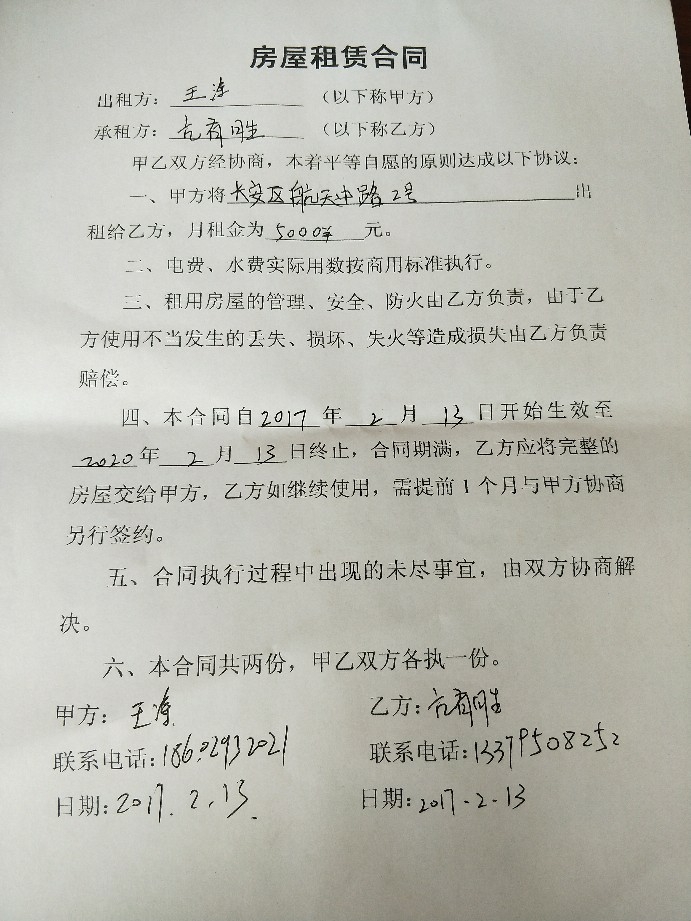 房屋租赁合同
出租方：王涛 （以下称甲方）
承租方： （以下称乙方）
甲乙双方经协商，本着平等自愿的原则达成以下协议：
一、甲方将长安区航天中路2号出
租给乙方，月租金为5000元。
二、电费、水费实际用数按商用标准执行。
三、租用房屋的管理、安全、防火由乙方负责，由于乙
方使用不当发生的丢失、损坏、失火等造成损失由乙方负责
赔偿。
四、本合同自2017年2月13日开始生效至
2020年2月13日终止，合同期满，乙方应将完整的
房屋交给甲方，乙方如继续使用，需提前1个月与甲方协商
另行签约。
五、合同执行过程中出现的未尽事宜，由双方协商解
决。
六、本合同共两份，甲乙双方各执一份。
甲方：王涛 乙方：
联系电话：18602932021 联系电话：13379508252
日期：2017.2.13. 日期：2017.2.13